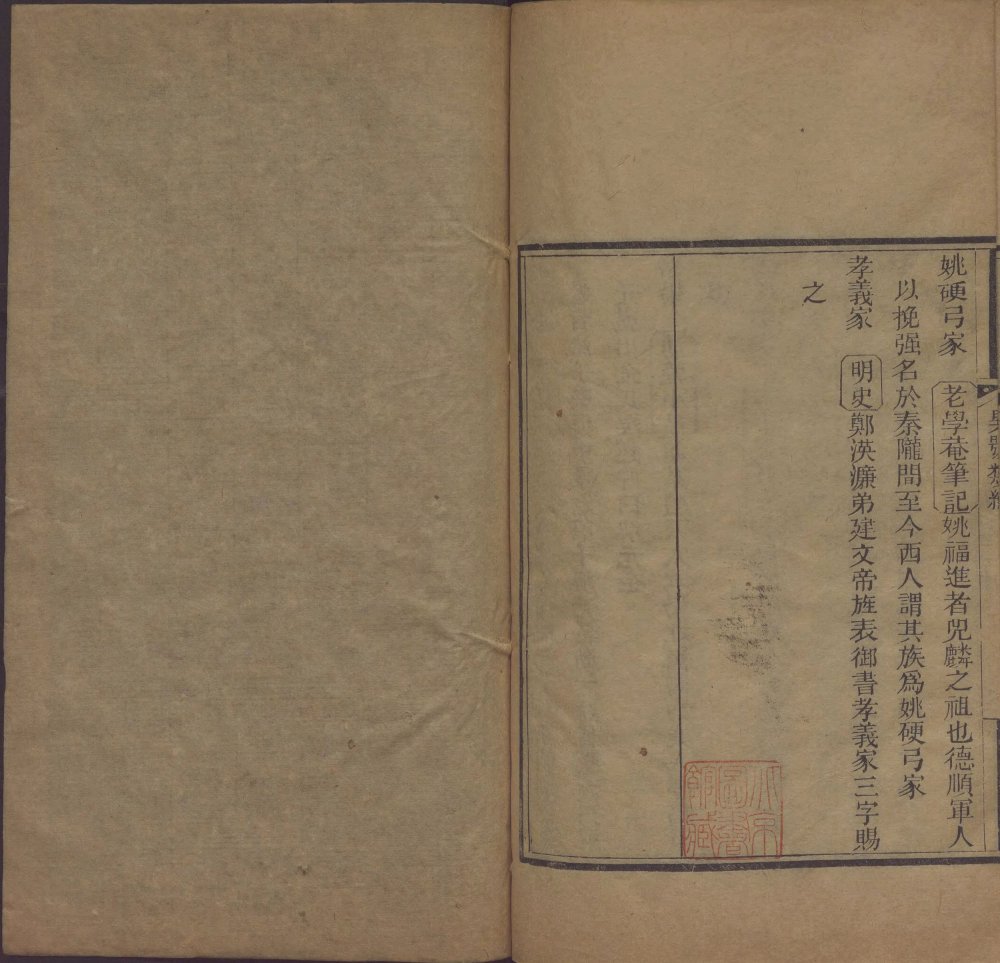 姚硬弓家　老學菴筆記姚福進者兕麟之祖也德順軍人
以挽强名於秦隴間至今西人謂其族爲姚硬弓家
孝義家　明史鄭渶濂弟建文帝旌表御書孝義家三字賜
之